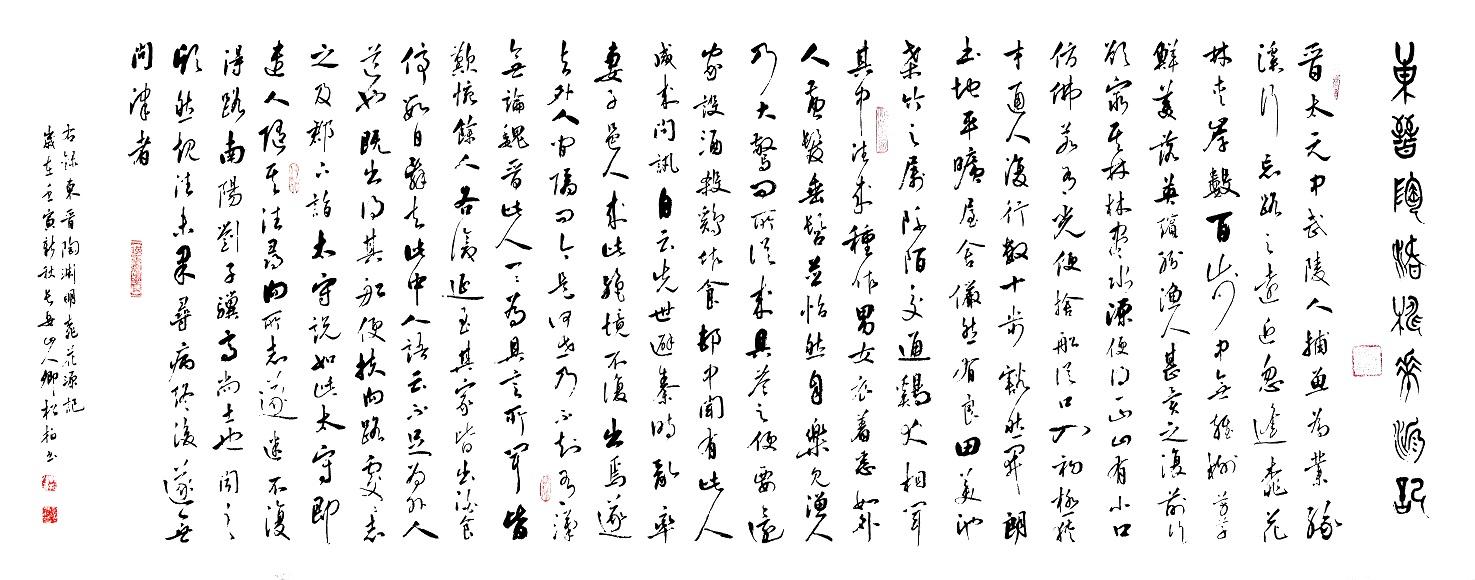 東晉陶潛桃花源記
晉太元中武陵人捕魚為業緣
溪行忘路之遠近忽逢桃花
林夾岸數百步中無雜樹芳草
鮮美落英繽紛漁人甚異之復前行
欲窮其林林盡水源便得一山山有小口
仿佛若有光便捨船從口入初極狹
才通人復行數十步豁然開朗
土地平曠屋舍儼然有良田美池
桑竹之屬阡陌交通鷄犬相聞
其中往來種作男女衣着悉如外
人黃髮垂髫並怡然自樂見漁人
乃大驚問所從來具答之便要還
家設酒殺鷄作食邨中聞有此人
咸來問訊自云先世避秦時亂率
妻子邑人來此絕境不復出焉遂
與外人間隔問今是何世乃不知有漢
無論魏晉此人一一為具言所聞皆
歎惋餘人各復延至其家皆出酒食
停數日辭去此中人語云不足為外人
道也既出得其船便扶向路處處志
之及郡下詣太守說如此太守即
遣人隨其往尋向所志遂迷不復
得路南陽劉子驥高尚士也聞之
欣然規往未果尋病終後遂無
問津者
右錄東晉陶淵明桃花源記
歲在壬寅新秋山人卿松柏書